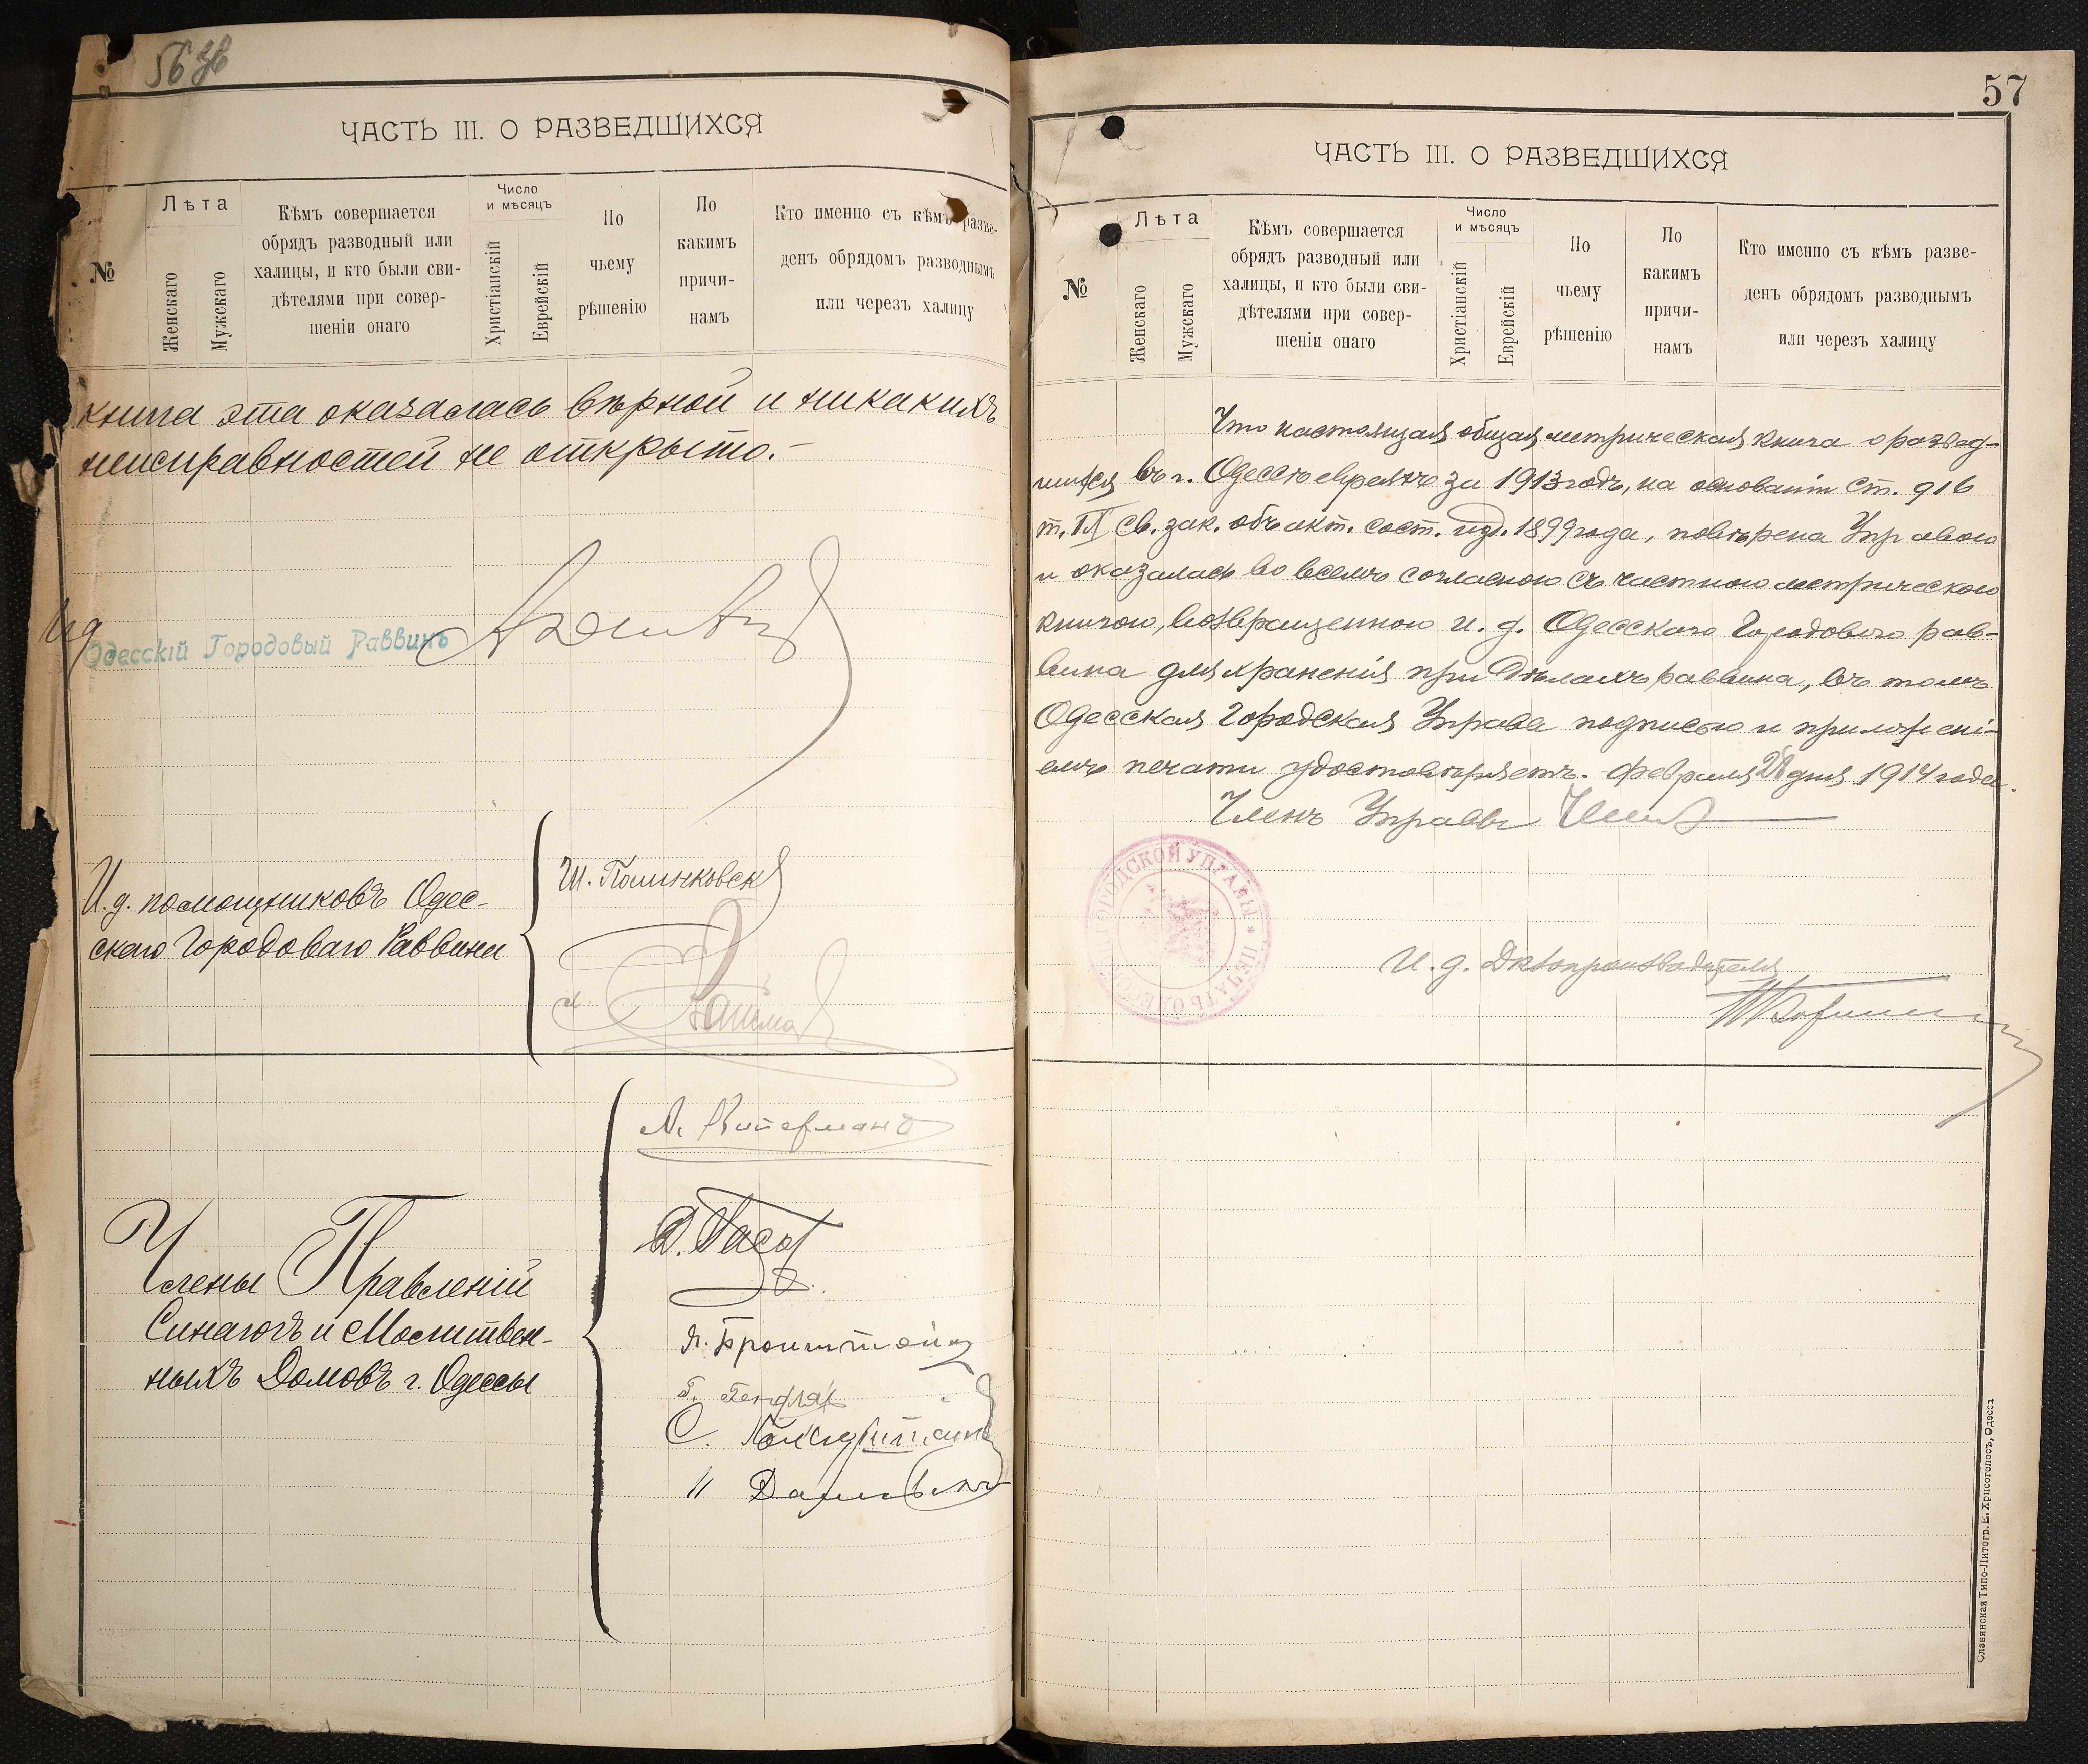 56 об
ЧАСТЬ III. О РАЗВЕДШИХСЯ
№
Лѣта
Женскаго
Мужскаго
Кѣмъ совершается
обрядъ разводный или
халицы, и кто были сви-
дѣтелями при совер-
шеніи онаго
Число
и мѣсяцъ
Христіанскій
Еврейскій
По
чьему
рѣшенію
По
какимъ
причи-
намъ
Кто именно съ кѣмъ разве-
денъ обрядомъ разводнымъ
или черезъ халицу
книга эта оказалась вѣрной и никакихъ
неисправностей не открыто.-
Ид
Одесскій Городовый Раввинъ
И.д. помощниковъ Одес-
скаго Городоваго Раввина
Члены Правленій
Синагогъ и Молитвен-
ныхъ Домовъ г. Одессы
Я. Бронштейн
57
ЧАСТЬ III. О РАЗВЕДШИХСЯ
№
Лѣта
Женскаго
Мужскаго
Кѣмъ совершается
обрядъ разводный или
халицы, и кто были сви-
дѣтелями при совер-
шеніи онаго
Число
и мѣсяцъ
Христіанскій
Еврейскій
По
чьему
рѣшенію
По
какимъ
причи-
намъ
Кто именно съ кѣмъ разве-
денъ обрядомъ разводнымъ
или черезъ халицу
Что настоящая общая метрическая книга о развед-
шихся въ г. Одессѣ евреяхъ за 1913 годъ, на основаніи ст. 916
т. IX св. зак. объ акт. сост. изд. 1899 года, повѣрена Управою
и оказалась во всемъ согласною съ частною метрическою
книгою, возвращенною и. д. Одесскаго Городового рав-
вина для храненія при дѣлахъ раввина, въ томъ
Одесская Городская Управа подписью и приложені-
емъ печати удостовѣряетъ. Февраля 28 дня 1914 года.
Членъ Управы
ПЕЧАТЬ ОДЕССК. ГОРОДСКОЙ УПРАВЫ *
И. д. Дѣлопроизводителя
Славянская Типо-Литогр. Е. Хрисогелосъ, Одесса